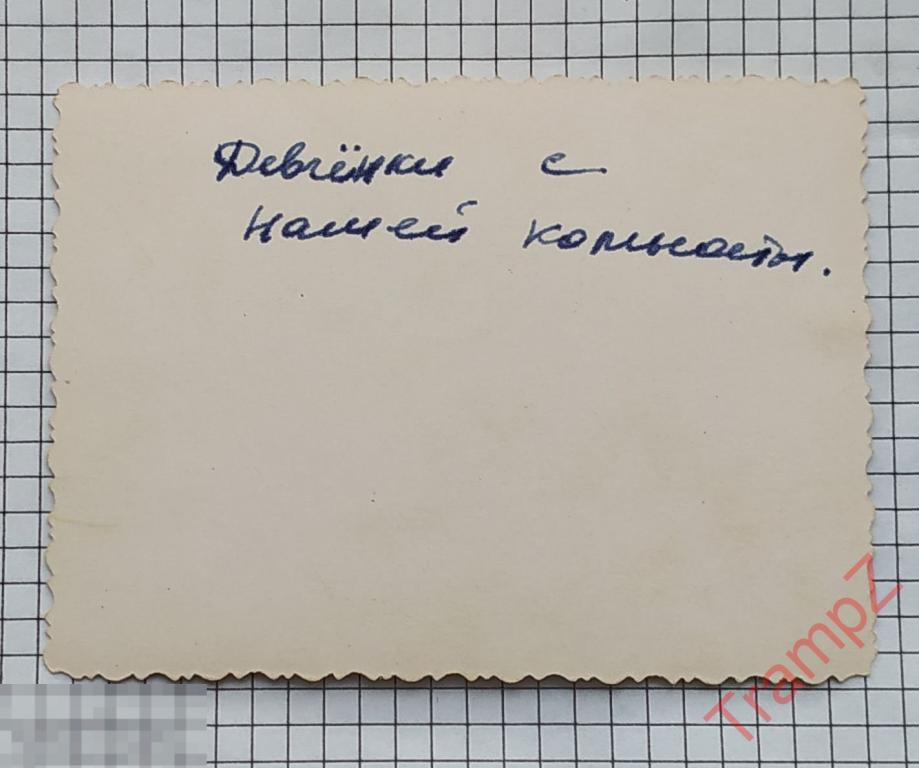 Девчёнки с
нашей комнаты.
TrampZ